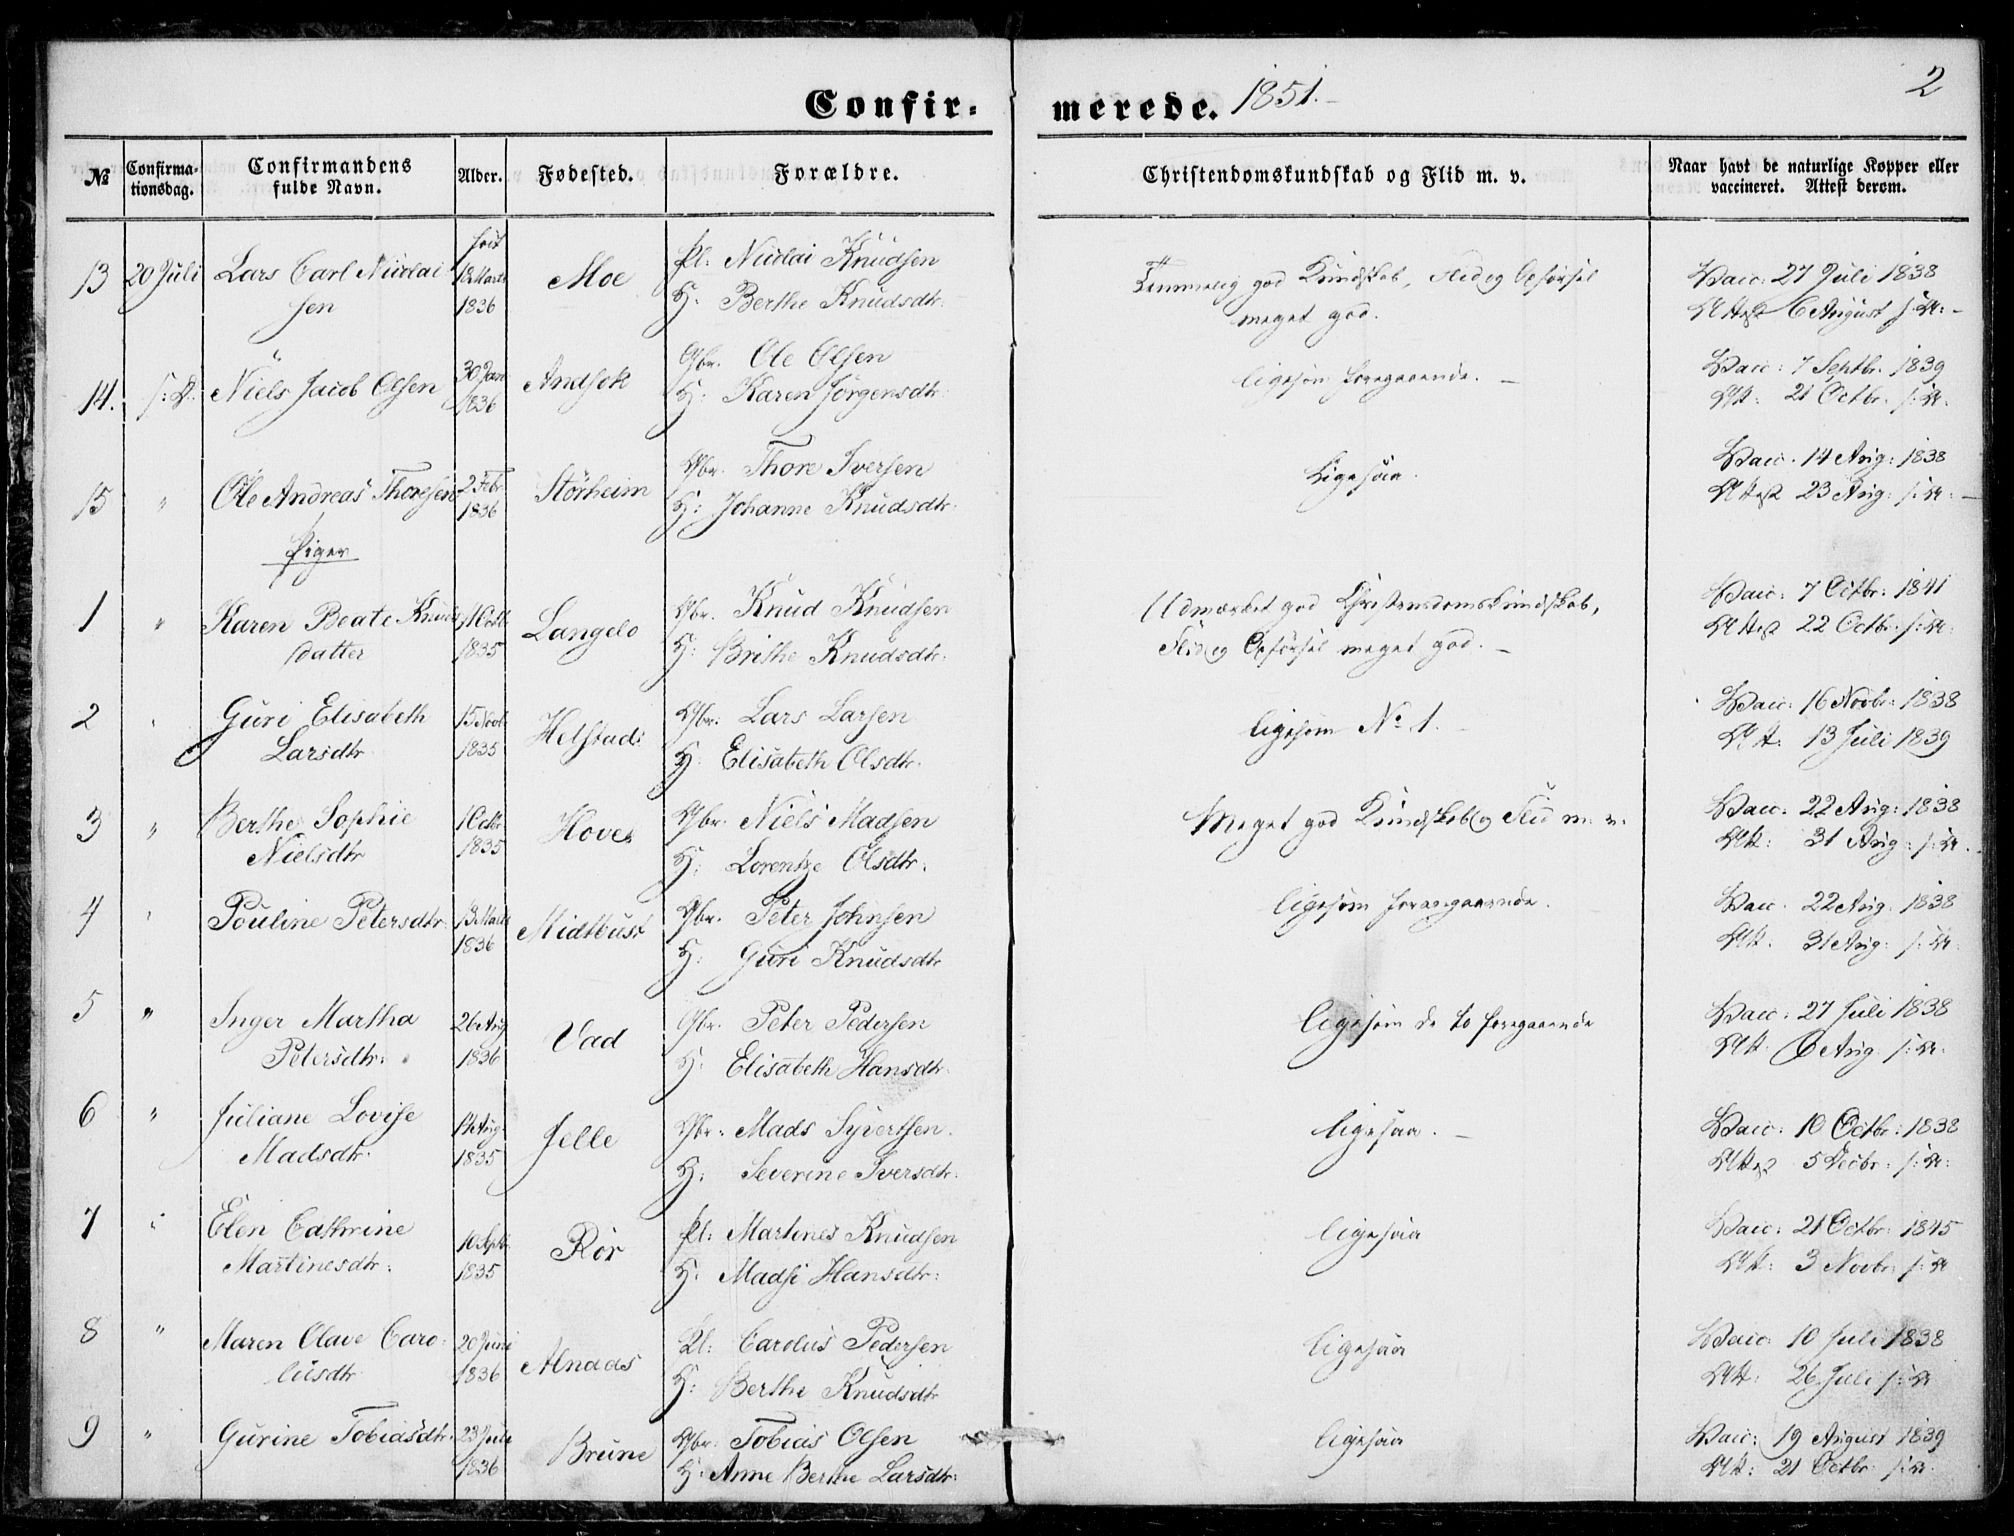 Confir-
merede. 1851.-
2
№
Confirma-
tionsdag.
Confirmandens
fulde Navn.
Alder.
Fødested.
Forældre.
Christendomskundskab og Flid m. v.
Naar havt de naturlige Kopper eller
vaccineret. Attest derom.
født
13 20 Juli Lars Carl Nicolai 13 Marts Moe Pl: Nicolai Knudsen Temmelig god Kundskab, Flid og Opførsel Vacc: 27 Juli 1838
sen 1836 H: Berthe Knudsdtr. meget god. Attest 6 August s: A: -
14. s: D. Niels Jacob Olsen 30 Jan 1836 Andsok Gbr. Ole Olsen ligesom foregaaende. - Vacc: 7 Septbr. 1839
H: Karen Jørgensdtr Att: 21 Octbr. s: A.
15 " Ole Andreas Thoresen 2 Febr. 1836 Störheim Gbr. Thore Iversen Ligesaa. Vacc. 14 Aug: 1838
H: Johanne Knudsdtr. Attest 23 Aug: s: A: -
Piger
1 " Karen Beate Knuds Octb Langelo Gbr. Knud Knudsen Udmærket god Christendomskundskab, Vacc: 7 Octbr: 1841
datter 1835 H: Brithe Knudsdtr. Flid og Opførsel meget god. - Attest 22 Octbr. s: A:
2 " Guri Elisabeth 15 Novb Helstad Gbr: Lars Larsen ligesom № 1. - Vacc: 16 Novbr: 1838
Larsdtr 1835 H. Elisabeth Olsdtr. Att: 13 Juli 1839
3 " Berthe Sophie 1 Octbr Hove Gbr. Niels Madsen Meget god Kundskab og Flid m: v: Vacc: 22 Aug: 1838
Nielsdtr 1835 H: Lorentze Olsdtr. Att: 31 Aug: s: A.
4 " Pouline Petersdtr. 13 Marts 1836 Midtbust Gbr. Peter Johnsen ligesom foregaaende. Vacc. 22 Aug: 1838
H: Guri Knudsdtr Att. 31 Aug: s: A:
5 " Inger Martha 26 Aug Vad Gbr. Peter Pedersen ligesom de to foregaaende Vacc: 27 Juli 1838
Petersdtr: 1836 H: Elisabeth Hansdtr. Att. 6 Aug: s: A:
6 " Juliane Lovise 14 Aug Jelle Gbr: Mads Syvertsen. ligesaa. - Vacc: 10 Octbr: 1838
Madsdtr. 1835 H: Severine Iversdtr. Attest 5 Decbr: s: A:
7 " Elen Cathrine 10 Sept Rör Pl: Martines Knudsen ligesaa Vacc: 21 Octbr: 1845
Martinesdtr. 1835 H: Madsi Hansdtr: Att: 3 Novbr: s: A
8 " Maren Olave Caro- 20 Juni Alnaas Pl: Carolus Pedersen ligesaa Vacc: 10 Juli 1838
lusdtr 1836 H: Berthe Knudsdtr Att: 26 Juli s: A
9 " Gurine Tobiasdtr. 23 Juli 1836 Brune Gbr: Tobias Olsen ligesaa Vacc: 19 August 1839
H: Anne Berthe Larsdtr: Att: 21 Octbr. s: A.